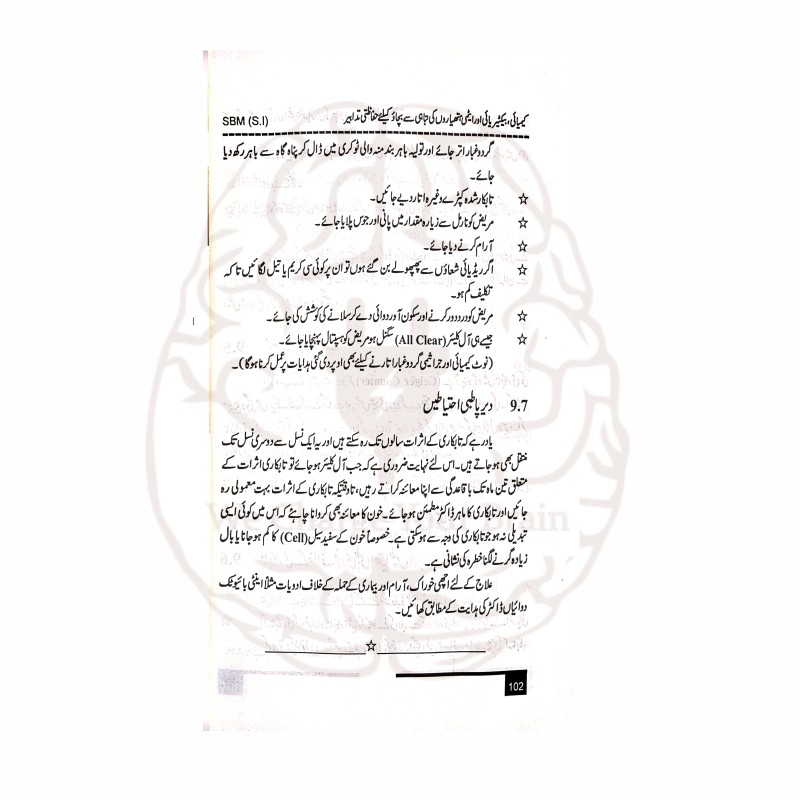 کیمیائی، بیکٹیریائی اور ایٹمی ہتھیاروں کی تباہی سے بچاؤ کیلئے حفاظتی تدابیر SBM (S.I)
گرد و غبار اتر جائے اور تولیہ باہر بند منہ والی ٹوکری میں ڈال کر پناہ گاہ سے باہر رکھ دیا
جائے۔
☆ تابکار شدہ کپڑے وغیرہ اتار دیے جائیں۔
☆ مریض کو نارمل سے زیادہ مقدار میں پانی اور جوس پلایا جائے۔
☆ آرام کرنے دیا جائے۔
☆ اگر ریڈیائی شعاؤں سے پھپھولے بن گئے ہوں تو ان پر کوئی سی کریم یا تیل لگائیں تاکہ
تکلیف کم ہو۔
☆ مریض کو درد دور کرنے اور سکون آور دوائی دے کر سلانے کی کوشش کی جائے۔
☆ جیسے ہی آل کلیئر (All Clear) سگنل ہو مریض کو ہسپتال پہنچایا جائے۔
(نوٹ کیمیائی اور جراثیمی گرد و غبار اتارنے کیلئے بھی اوپر دی گئی ہدایات پر عمل کرنا ہوگا)۔
9.7 دیرپا طبی احتیاطیں
یاد رہے کہ تابکاری کے اثرات سالوں تک رہ سکتے ہیں اور یہ ایک نسل سے دوسری نسل تک
منتقل بھی ہو جاتے ہیں۔ اس لئے نہایت ضروری ہے کہ جب آل کلیئر ہو جائے تو تابکاری اثرات کے
متعلق تین ماہ تک باقاعدگی سے اپنا معائنہ کراتے رہیں، تاوقتیکہ تابکاری کے اثرات بہت معمولی رہ
جائیں اور تابکاری کا ماہر ڈاکٹر مطمئن ہو جائے۔ خون کا معائنہ بھی کروانا چاہئے کہ اس میں کوئی ایسی
تبدیلی نہ ہو جو تابکاری کی وجہ سے ہو سکتی ہے۔ خصوصاً خون کے سفید سیل (Cell) کا کم ہو جانا یا بال
زیادہ گرنے لگنا خطرہ کی نشانی ہے۔
علاج کے لئے اچھی خوراک، آرام اور بیماری کے حملہ کے خلاف ادویات مثلاً اینٹی بائیوٹک
دوائیاں ڈاکٹر کی ہدایت کے مطابق کھائیں۔
☆
102